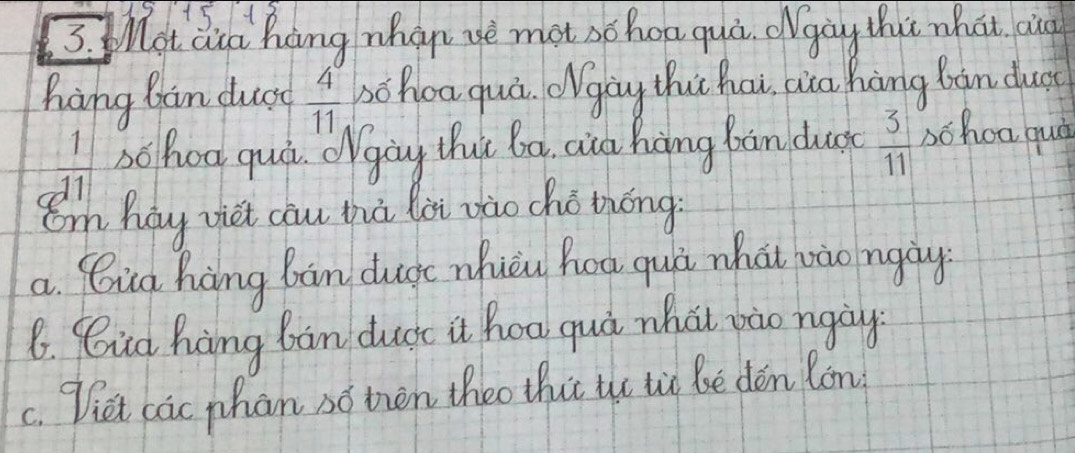 15 15 15
3. Một cửa hàng nhập về một số hoa quả. Ngày thứ nhất, cửa
hàng bán được 4/11 số hoa quả. Ngày thứ hai, cửa hàng bán được
1/11 số hoa quả. Ngày thứ ba, cửa hàng bán được 3/11 số hoa quả
Em hãy viết câu trả lời vào chỗ trống:
a. Cửa hàng bán được nhiều hoa quả nhất vào ngày:
b. Cửa hàng bán được ít hoa quả nhất vào ngày:
c. Viết các phân số trên theo thứ tự từ bé đến lớn: